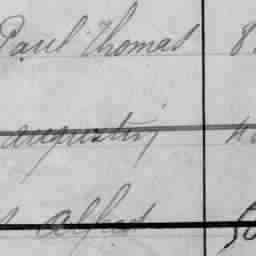 Paul Thomas 8
Augustin
Alfred 50